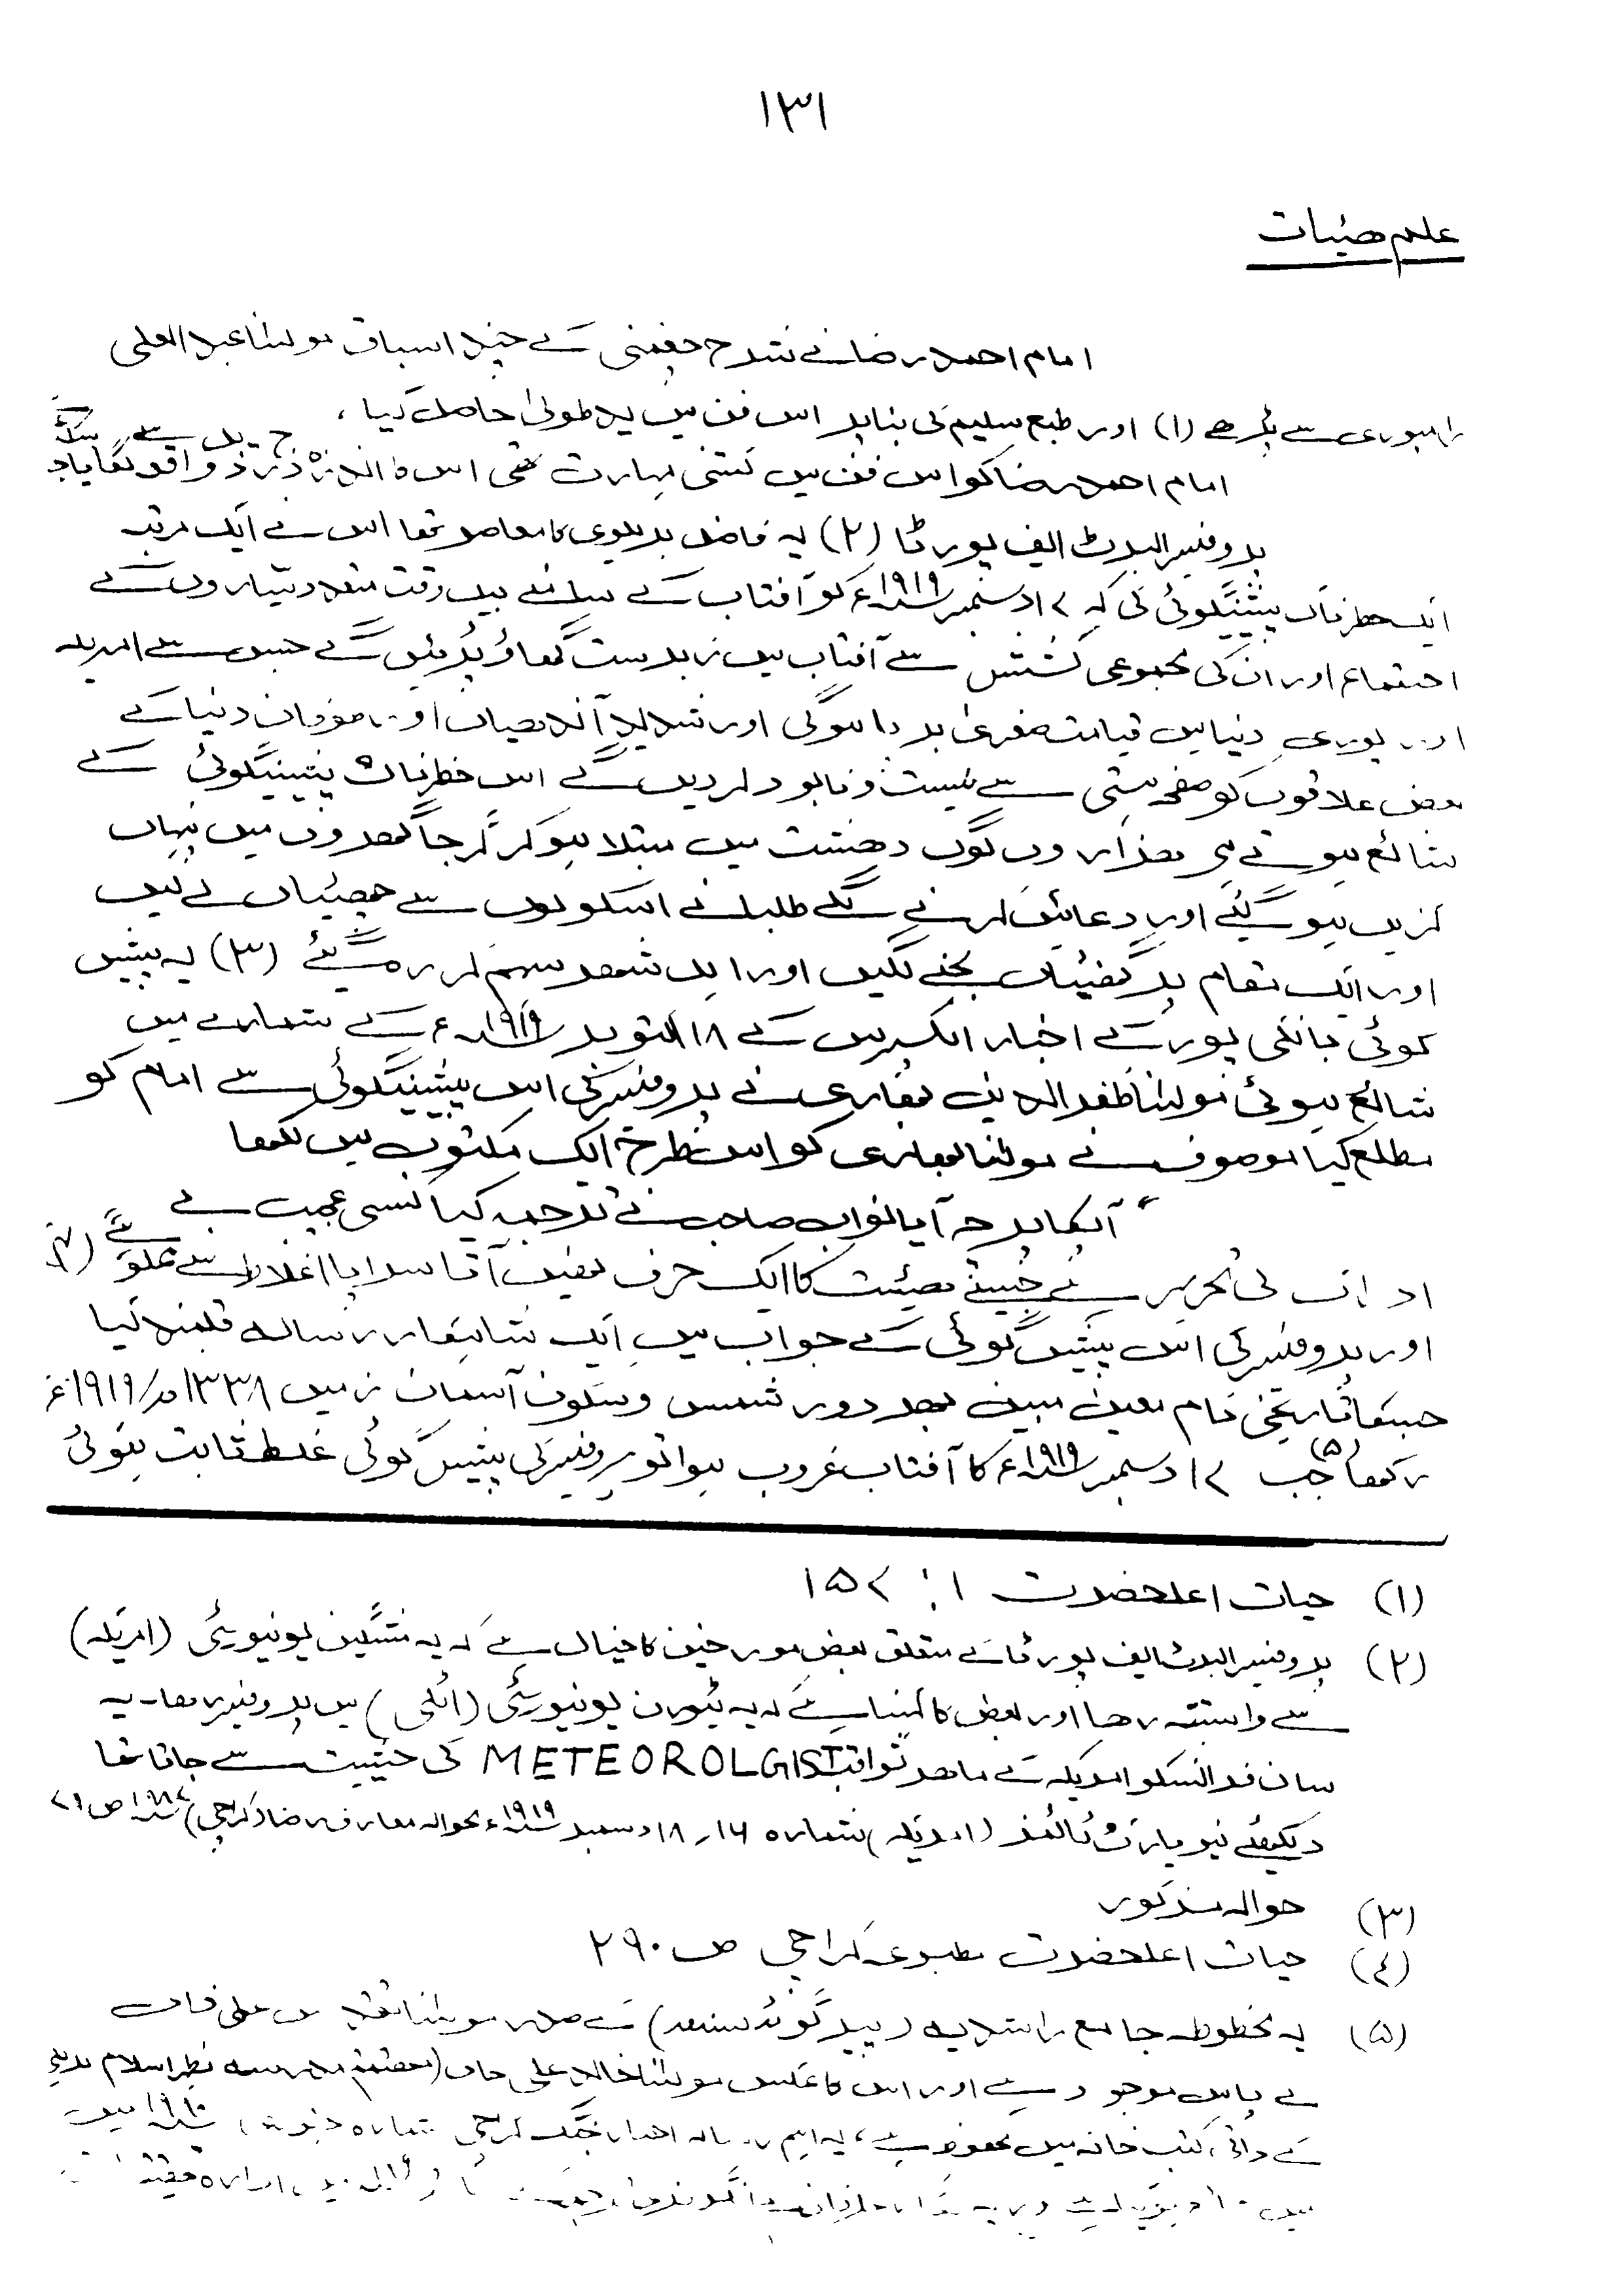 ۱۳۱
علم ھئیات
امام احمد رضا نے شرح چغمنی کے چند اسباق مولٰنا عبد العلی
رامپوری سے پڑھے (۱) اور طبع سلیم کی بنا پر اس فن میں ید طولیٰ حاصل کیا،
امام احمد رضا کو اس فن میں کتنی مہارت تھی اس کا اندازہ ذیل کے واقعہ سے لگایا جا سکتا ہے
پروفیسر البرٹ ایف پورٹا (۲) یہ فاضل بریلوی کا معاصر تھا اس نے ایک مرتبہ
ایک خطرناک پیشنیگوئی کی کہ ۱۷ دسمبر ۱۹۱۹ء کو آفتاب کے سامنے بیک وقت متعدد سیاروں کے
اجتماع اور ان کی مجموعی کشش سے آفتاب میں زبردست گھاؤ پڑیں گے جس سے امریکہ
اور پوری دنیا میں قیامت صغریٰ برپا ہوگی اور شدید آندھیاں اور طوفان دنیا کے
بعض علاقوں کو صفحہ ہستی سے نیست و نابود کر دیں گے اس خطرناک پیشینیگوئی کے
شائع ہوتے ہی ہزاروں لوگ دھشت میں مبتلا ہو کر گرجا گھروں میں پناہ
گزیں ہو گئے اور دعائیں کرنے لگے طلبا نے اسکولوں سے چھٹیاں لے لیں
اور ایک مقام پر گھنٹیاں بجنے لگیں اور اہل شھر سہم کر رہ گئے (۳) یہ پیشیں
گوئی بانکی پور کے اخبار اکسپریس کے ۱۸ اکتوبر ۱۹۱۹ء کے شمارے میں
شائع ہوئی مولٰنا ظفر الدین بھاری نے پروفیسر کی اس پیشینیگوئی سے امام کو
مطلع کیا موصوف نے مولٰنا بھاری کو اس طرح ایک مکتوب میں لکھا
“آپکا پرچہ آیا نواب صاحب نے ترجمہ کیا کسی عجیب بے
ادراک کی تحریر ہے جسے ھیئت کا ایک حرف نھیں آتا سراپا اغلاط سے مملو ہے (۴)
اور پروفیسر کی اس پیشیں گوئی کے جواب میں ایک شاہکار رسالہ قلمبند کیا
جسکا تاریخی نام معین مبین بھر دور شمس و سکون آسمان زمیں ۱۳۳۸ھ/۱۹۱۹ء
رکھا (۵) جب ۱۷ دسمبر ۱۹۱۹ء کا آفتاب غروب ہوا تو پروفیسر کی پیشیں گوئی غلط ثابت ہوئی
(۱) حیات اعلحضرت ۱: ۱۵۷
(۲) پروفیسر البرٹ ایف پورٹا کے متعلق بعض مورخین کا خیال ہے کہ یہ مشیگن یونیورسٹی (امریکہ)
سے وابستہ رھا اور بعض کا کہنا ہے کہ یہ ٹیورن یونیورسٹی (اٹلی) میں پروفیسر رھا۔ یہ
سان فرانسکو امریکہ کے ماھر ثواقب METEOROLGIST کی حیثیت سے جانا تھا
دیکھئے نیویارک ٹائمز (امریکہ) شمارہ ۱۶، ۱۸ دسمبر ۱۹۱۹ء بحوالہ معارف رضا (کراچی)
(۳) حوالہ مذکور
(٤) حیات اعلحضرت مطبوعہ کراچی ص ۲۹۰
(۵) یہ مخطوطہ جامع راشدیہ (پیر گوٹھ سندھ) کے صدر مولانا تقدس علی خاں
کے پاس موجود ہے اور اس کا عکس مولٰنا خالد علی خاں (مھتمم مدرسہ مظر اسلام بریلی
کے ذاتی کتب خانہ میں محفوظ ہے، یہ اہم رسالہ اخبار جنگ کراچی شمارہ